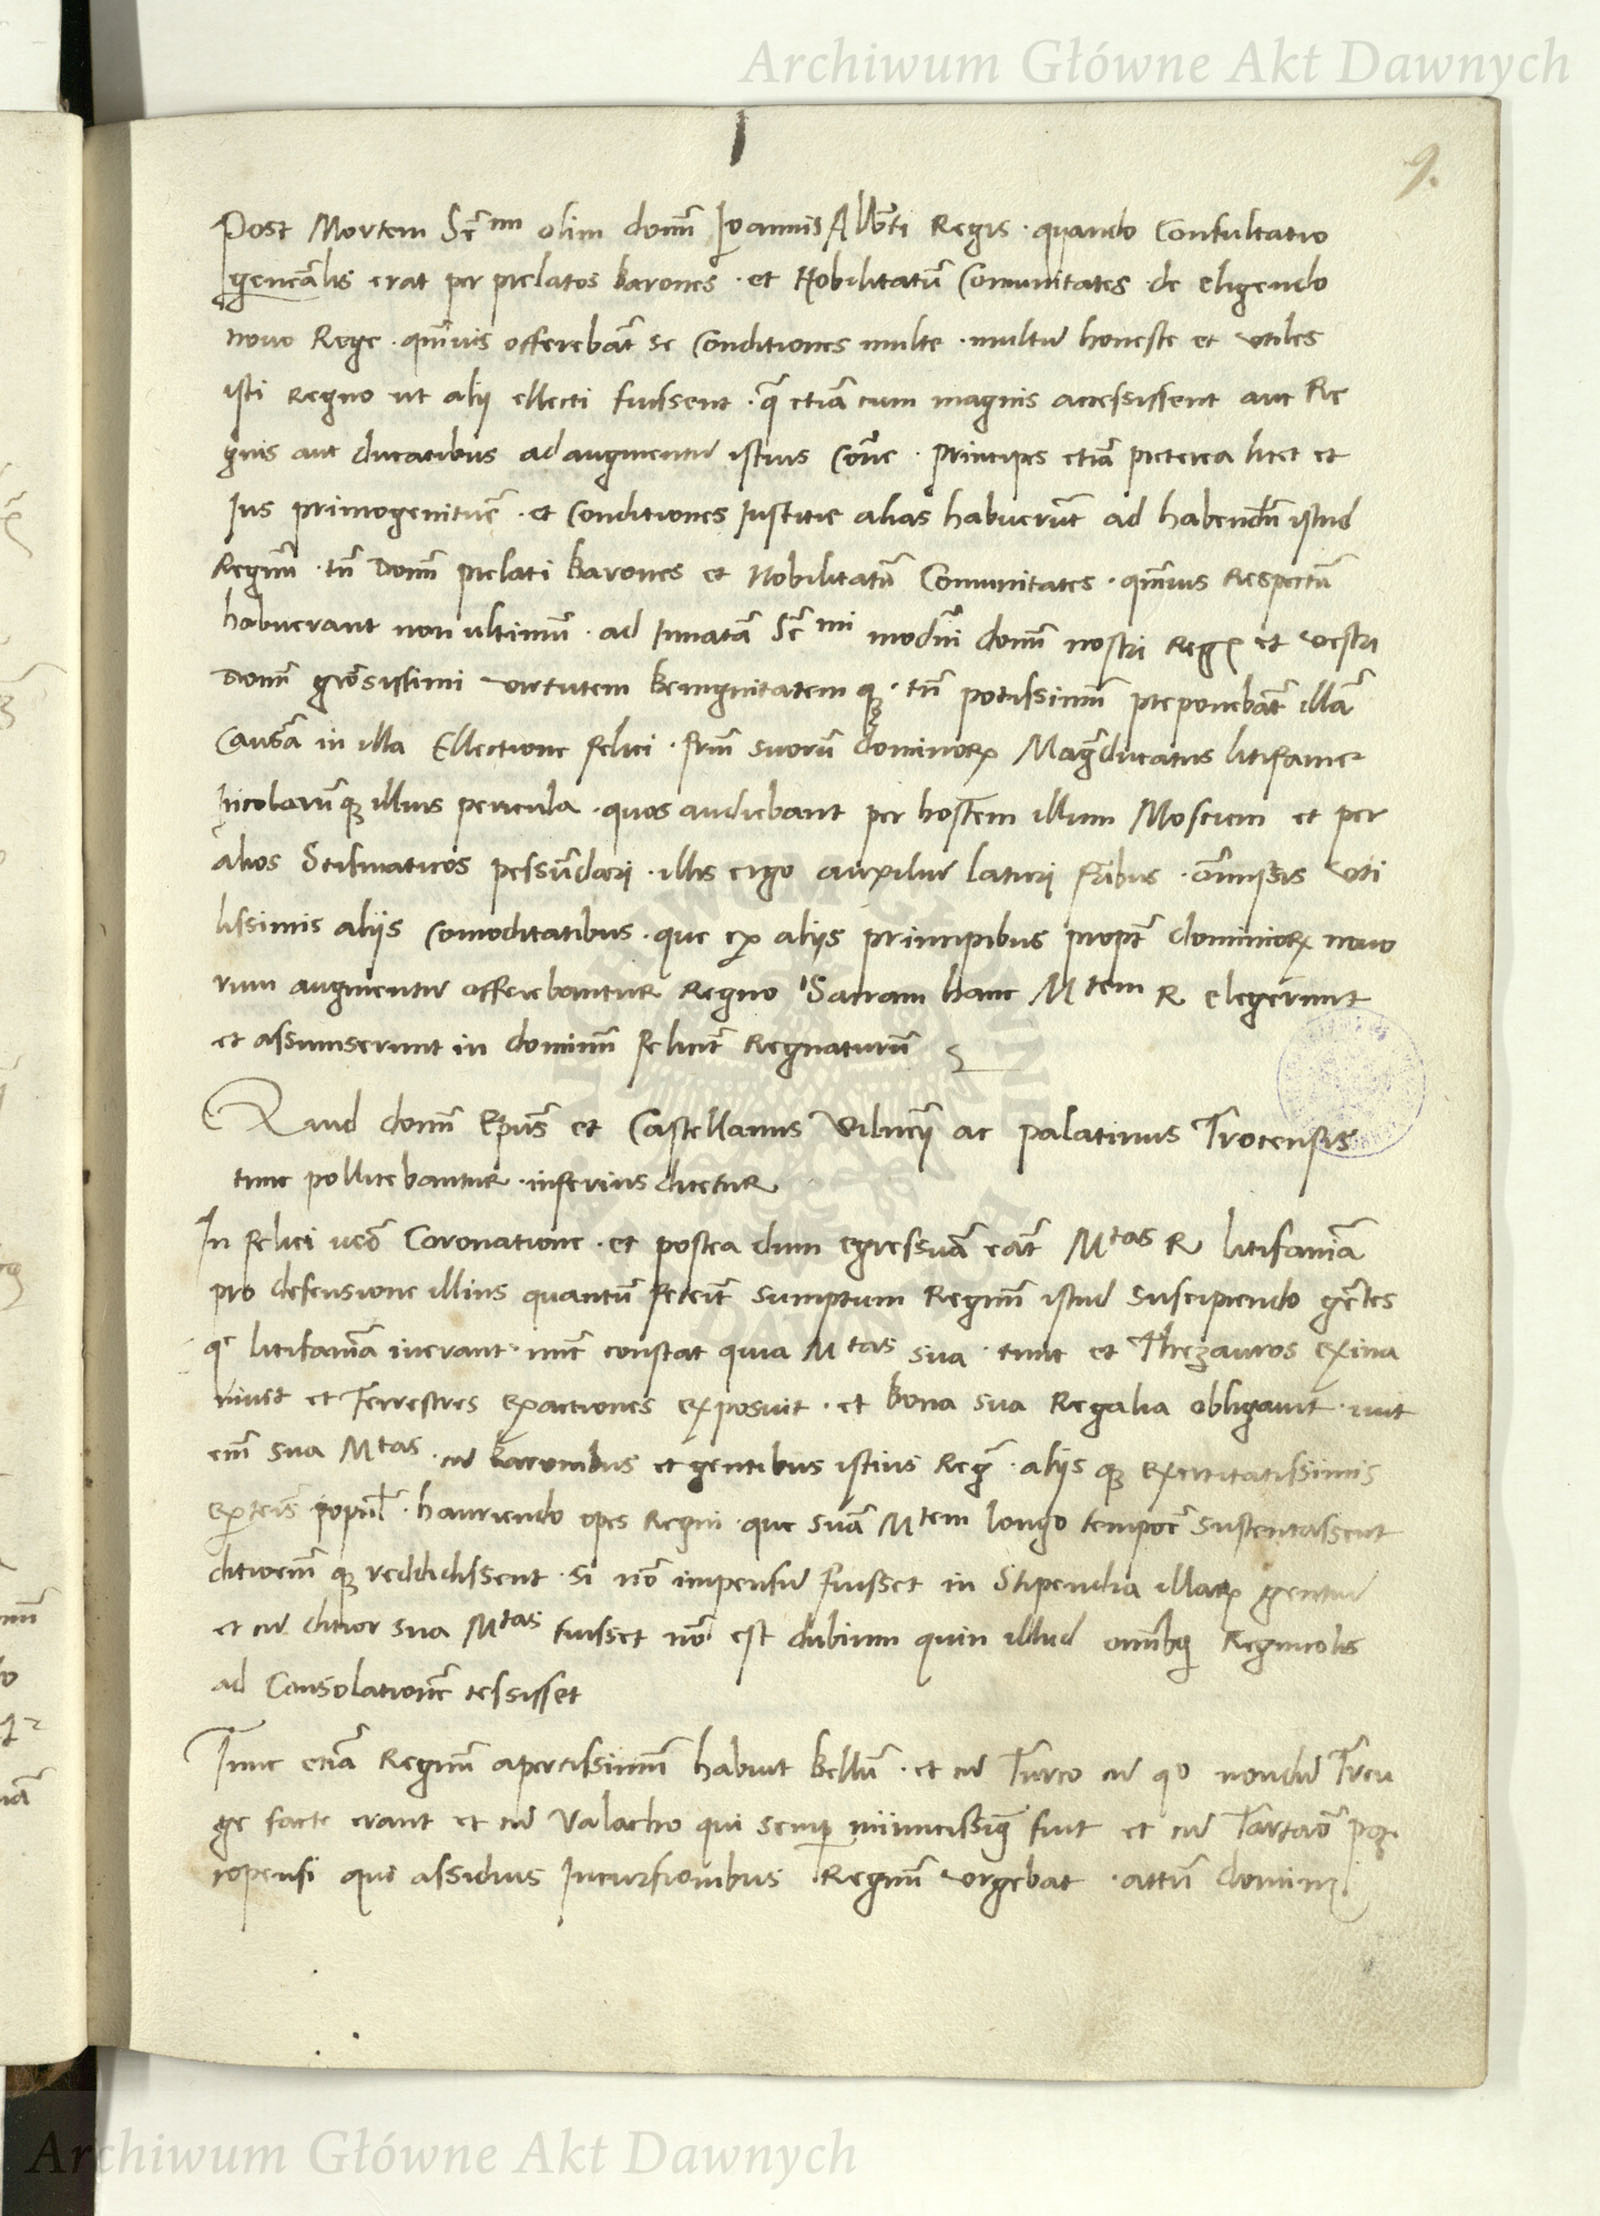 Archiwum Główne Akt Dawnych
9.
Post Mortem Sermi olim domini Joannis Alberti Regis · quando Consultatio
generalis erat per prelatos barones · et Nobilitatũ Comunitates · de eligendo
novo Rege · quãvis offerebãt se Conditiones multe · multũ honeste et utiles
isti Regno ut alij ellecti fuissent · q̃ etiã cum magnis accessissent aut Re
gnis aut ducatibus ad augmentũ istius Corõe · principes etiã preterea licet et
Jus primogeniturẽ · et Conditiones Justitie alias habuerũt ad habendũ istud
Regnũ · tñ domĩ prelati barones et Nobilitatũ Comunitates · quãvis Respectũ
habuerant non ultimũ · ad Innatã Serᵐⁱ moderni domĩ nostri Regis et vestri
domĩ gratiosissimi virtutem benignitatem que · tñ potissimũ preponebãt illã
Causã in illa Ellectione felici · frũm suorũ dominiorum Magni ducatus litifanie
Incolarũque illius pericula · quos audiebant per hostem illum Moscum et per
alios Scismaticos pessũdari · illis ergo auxiliũ laturi frãtibus · omissis uti
lissimis aliis Comoditatibus · que ex aliis principibus propter dominiorum novo
rum augmentũ offerebantur Regno Sacram hanc Mtem R elegerunt
et assumserunt in dominũ feliciter Regnaturũ
Quid domĩ Epũs et Castellanus Vilnẽn ac palatinus Trocensis
tunc pollicebantur · inferius dicetur
In felici vero Coronatione · et postea dum egressura erat Mtas R litifaniã
pro defensione illius quantũ fecerit sumptum Regnũ istud suscipiendo gentes
que litifaniã iverant · nunc constat quia Mtas sua · tunc et Thezauros exina
nivit et Terrestres exactiones exposuit · et bona sua Regalia obligavit · ivit
enĩ sua Mtas · cũ baronibus et gentibus istius Regni · aliis que exercitatissimis
exteris populis · hauriendo opes Regni · que suã Mtem longo tempore sustentassent
ditiorem que reddidissent · si nõ impensũ fuisset in Stipendia illarum gentiũ
et cũ ditior sua Mtas fuisset nõ est dubium quin illud omnibus Regnicolis
ad Consolationẽ cessisset
Tunc etiã Regnũ apertissimũ habuit bellũ · et cũ Turco cũ quo nondũ Treu
ge facte erant et cũ Valacho qui semper inimicissimus fuit et cũ Tartaro pre
copensi qui assiduis Incursionibus Regnũ urgebat · attñ domini
Archiwum Główne Akt Dawnych